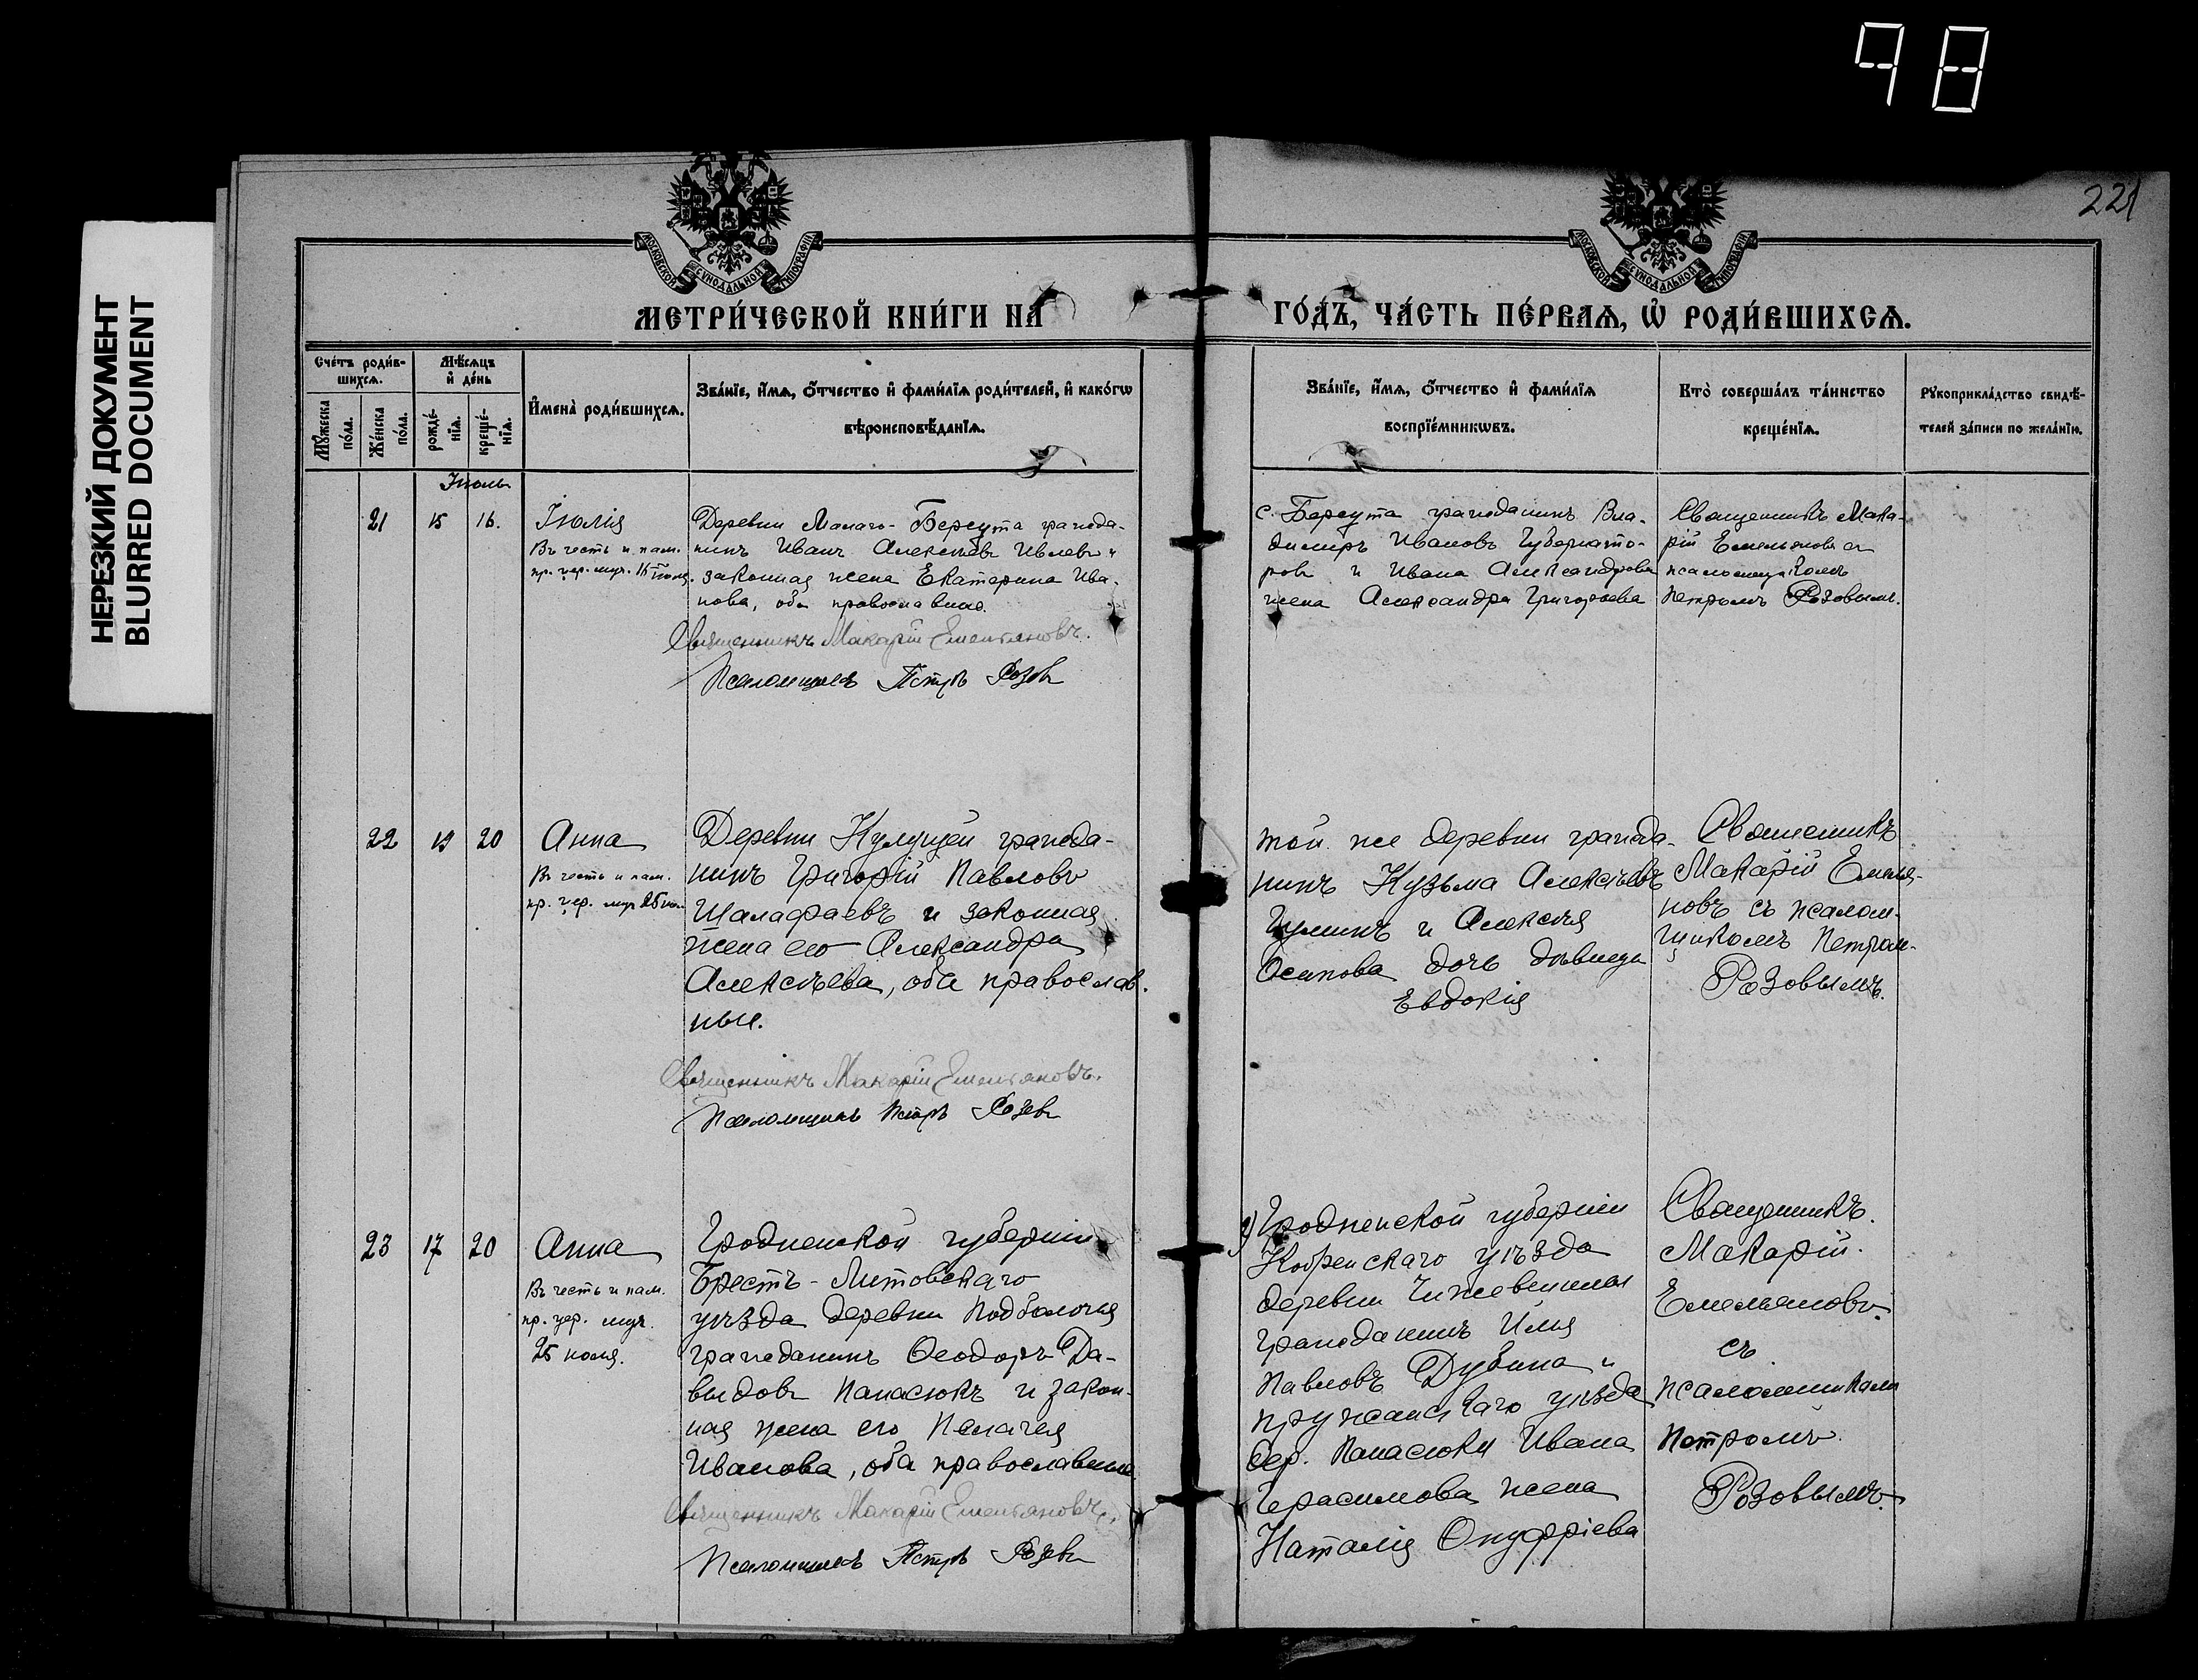 98
221
НЕРЕЗКИЙ ДОКУМЕНТ
BLURRED DOCUMENT
МОСКОВСКОЙ СѴНОДАЛЬНОЙ ТИПОГРАФІИ
МОСКОВСКОЙ СѴНОДАЛЬНОЙ ТИПОГРАФІИ
МЕТРИ́ЧЕСКОЙ КНИ́ГИ НА̀
ГО́ДЪ, ЧА́СТЬ ПЕ́РВАѦ, Ѡ҆ РОДИ́ВШИХСѦ.
Сче́тъ роди́в-
шихсѧ.
Мꙋ́жеска
по́ла.
Же́нска
по́ла.
Мѣ́сѧцъ
и҆ де́нь
рожде́-
нїѧ.
креще́-
нїѧ.
И҆мена̀ роди́вшихсѧ.
Зва́нїе, и҆́мѧ, ѻ҆́тчество и҆ фами́лїѧ роди́телей, и҆ како́гѡ
вѣроисповѣ́данїѧ.
Зва́нїе, и҆́мѧ, ѻ҆́тчество и҆ фами́лїѧ
воспрїе́мникѡвъ.
Кто̀ соверша́лъ та́инство
креще́нїѧ.
Рꙋкоприкла́дство свидѣ́-
телей за́писи по жела́нїю.
Іюль
21 15 16.
Іюлія
Въ честь и пам.
пр. цер. муч.
Деревни Малаго-Берсута гражда-
нинъ Иванъ Алексѣевъ Ивлевъ и
законная жена Екатерина Ива-
нова, оба православные.
Священникъ Макарій Емельяновъ.
Псаломщикъ Петръ Розовъ
с. Берсута гражданинъ Вла-
димиръ Ивановъ Губернато-
ровъ и Ивана Александрова
жена Александра Григорьева
Священникъ Мака-
рій Емельяновъ съ
псаломщикомъ
Петромъ Розовымъ.
22 19 20
Анна
Въ честь и пам.
пр. цер. муч. 25
Деревни Кулущей гражда-
нинъ Григорій Павловъ
Шалафаевъ и законная
жена его Александра
Алексѣева, оба православ-
ные.
Священникъ Макарій Емельяновъ.
Псаломщикъ Петръ Розовъ
той же деревни гражда-
нинъ Кузьма Алексѣевъ
и Алексѣя
Осипова дочь дѣвица
Евдокія
Священникъ
Макарій Емелья-
новъ съ псалом-
щикомъ Петром-
Розовымъ.
23 17 20
Анна
Въ честь и пам.
пр. цер. муч.
25 іюля.
Гродненской губерніи
Брестъ-Литовскаго
уѣзда деревни Подболотья
гражданинъ Ѳеодоръ Да-
выдовъ Панасюкъ и закон-
ная жена его Пелагея
Иванова, оба православные
Священникъ Макарій Емельяновъ.
Псаломщикъ Петръ Розовъ
Гродненской губерніи
Кобринскаго уѣзда
деревни
гражданинъ Илья
Павловъ Дубина и
пружанскаго уѣзда
дер. Панасюки Ивана
Герасимова жена
Наталія Онуфріева
Священникъ.
Макарій.
Емельяновъ.
съ
псаломщикомъ
Петромъ.
Розовымъ.